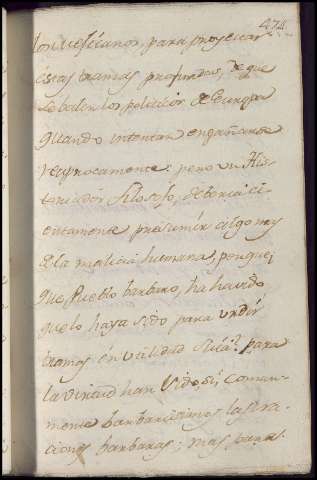 474.
los Mexicanos, para proyectar
estas tramas profundas, de que
se valen los politicos de Europa
quando intentan engañarse
reciprocamente: pero un His-
toriador Filosofo, deberia ci-
ertamente presumir algo mas
de la malicia humana, porque¡
que Pueblo barbaro, ha havido
que lo haya sido para urdir
tramas en utilidad suia? para
la virtud han sido, sí, comun-
mente barbarisimos las na-
ciones barbaras; mas para